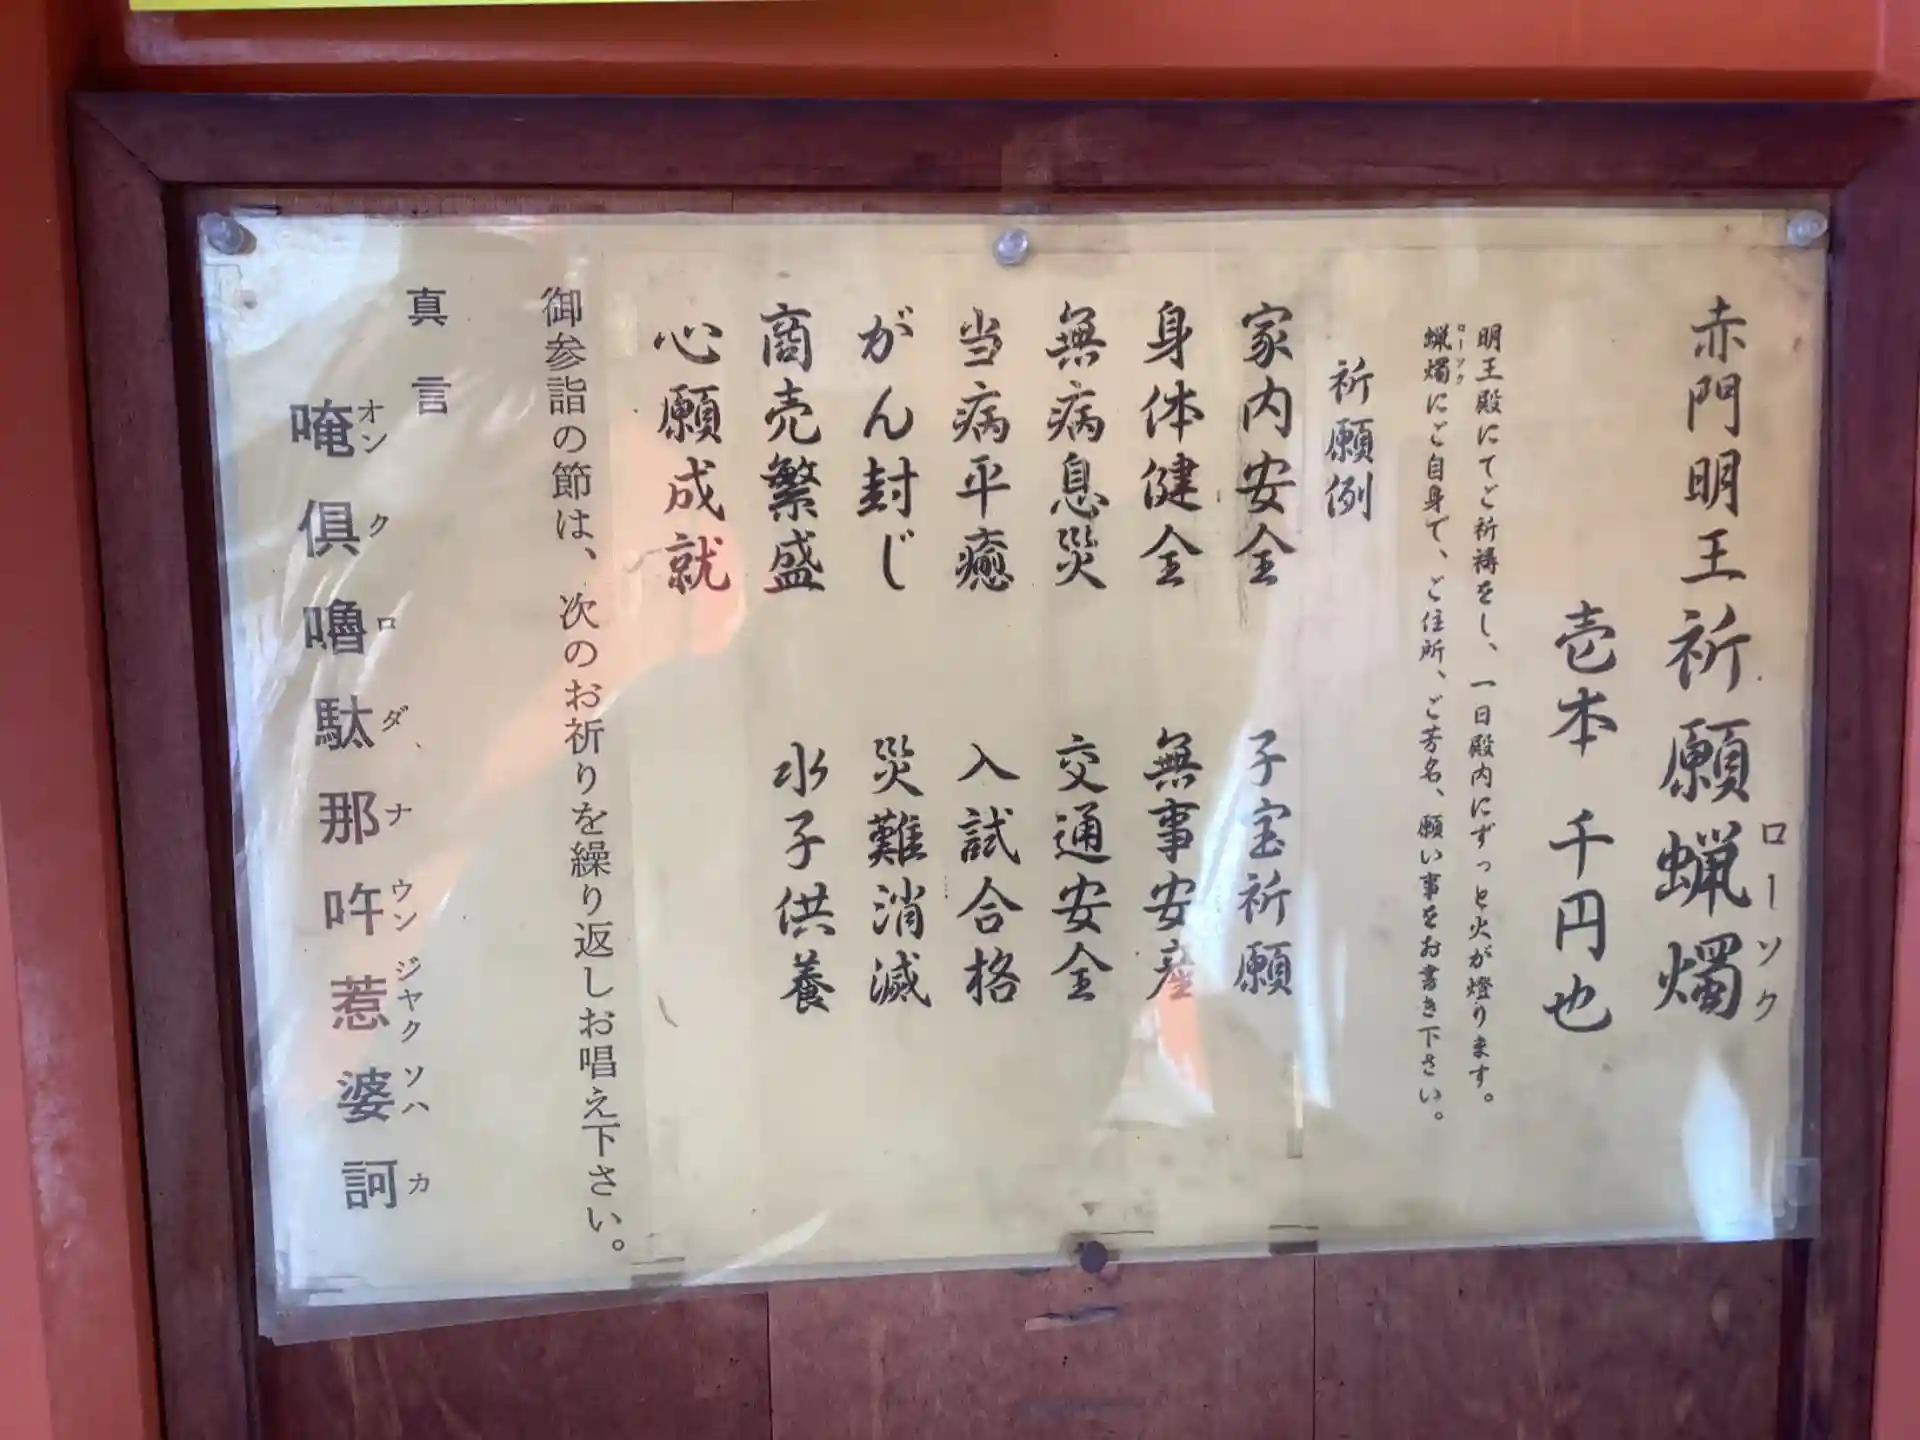 赤門明王祈願蝋燭
ローソク
壱本 千円也
明王殿にてご祈祷をし、一日殿内にずっと火が燈ります。
蝋燭にご自身で、ご住所、ご芳名、願い事をお書き下さい。
ローソク
祈願例
家内安全 子宝祈願
身体健全 無事安産
無病息災 交通安全
当病平癒 入試合格
がん封じ 災難消滅
商売繁盛 水子供養
心願成就
御参詣の節は、次のお祈りを繰り返しお唱え下さい。
真言
唵俱嚕駄那吽惹婆訶
オン ク ロ ダ ナ ウン ジャク ソハ カ